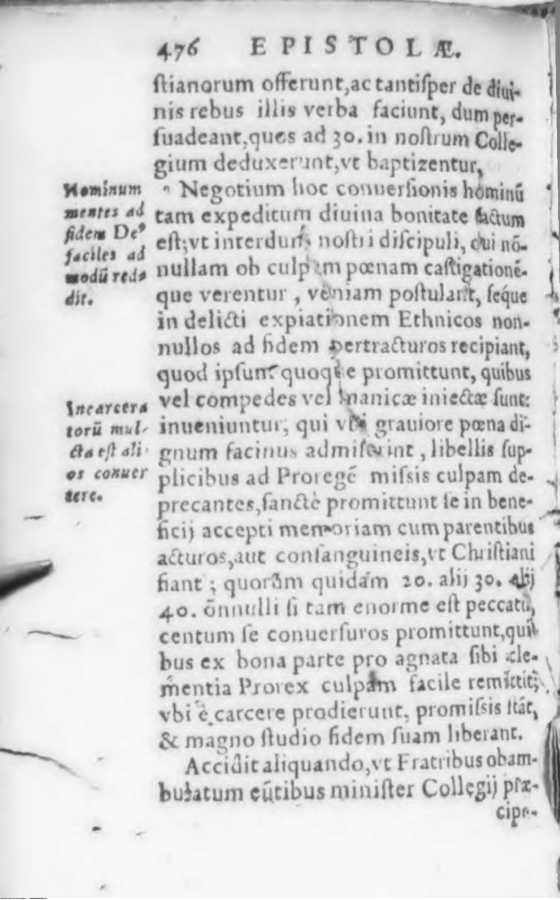 476 EPISTOLÆ.
ſtianorum offerunt, ac tantiſper de diui-
nis rebus illis verba faciunt, dum per-
ſuadeant, ques ad 30. in noſtrum Colle-
gium deduxerunt, vt baptizentur,
Negotium hoc conuerſionis hominū
tam expeditum diuina bonitate factum
eſt; vt interdum noſtri diſcipuli, cui nō-
nullam ob culpam pœnam caſtigationē-
que verentur, veniam poſtulant, ſeque
in delicti expiationem Ethnicos non-
nullos ad fidem pertracturos recipiant,
quod ipſum quoque promittunt, quibus
vel compedes vel manicæ iniectæ ſunt:
inueniuntur, qui vbi grauiore pœna di-
gnum facinus admiſerint, libellis ſup-
plicibus ad Proregē miſsis culpam de-
precantes, ſanctè promittunt ſe in bene-
ficij accepti memoriam cum parentibus
acturos, aut conſanguineis, vt Chriſtiani
fiant; quorum quidam 20. alij 30. alij
40. ōnnulli ſi tam enorme eſt peccatū,
centum ſe conuerſuros promittunt, qui-
bus ex bona parte pro agnata ſibi cle-
mentia Prorex culpam facile remittit;
vbi è carcere prodierunt, promiſsis ſtāt,
& magno ſtudio fidem ſuam liberant.
Accidit aliquando, vt Fratribus obam-
bulatum eūtibus miniſter Collegij præ-
cipe-
Hominum
mentes ad
fidem De⁹
faciles ad
modū red-
dit.
Incarcera
torū mul-
cta eſt ali-
os conuer
tere.